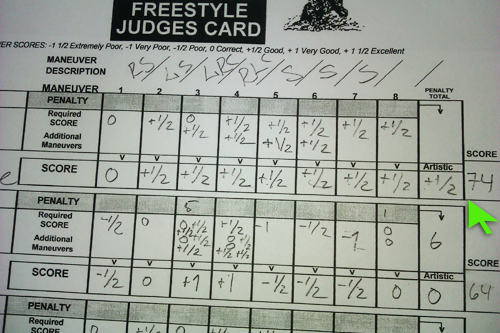 FREESTYLE
JUDGES CARD
ER SCORES: -1 1/2 Extremely Poor, -1 Very Poor, -1/2 Poor, 0 Correct, +1/2 Good, + 1 Very Good, + 1 1/2 Excellent
MANEUVER
DESCRIPTION RS / LS / LRC / RLC / S / S / S / /
MANEUVER 1 2 3 4 5 6 7 8 PENALTY TOTAL
PENALTY
Required SCORE 0 +1/2 0 +1/2 +1/2 +1/2 +1/2 +1/2
Additional Maneuvers +1/2 +1/2 +1/2 +1/2
SCORE
V V V V V V V V Artistic
SCORE 0 +1/2 +1/2 +1/2 +1/2 +1/2 +1/2 +1/2 +1/2 74
PENALTY 5 1
Required SCORE -1/2 0 +1/2 -1 -1/2 -1 0 6
Additional Maneuvers 0
SCORE
V V V V V V V V Artistic
SCORE -1/2 0 +1 +1 -1/2 -1/2 -1/2 0 0 64
PENALTY
Required